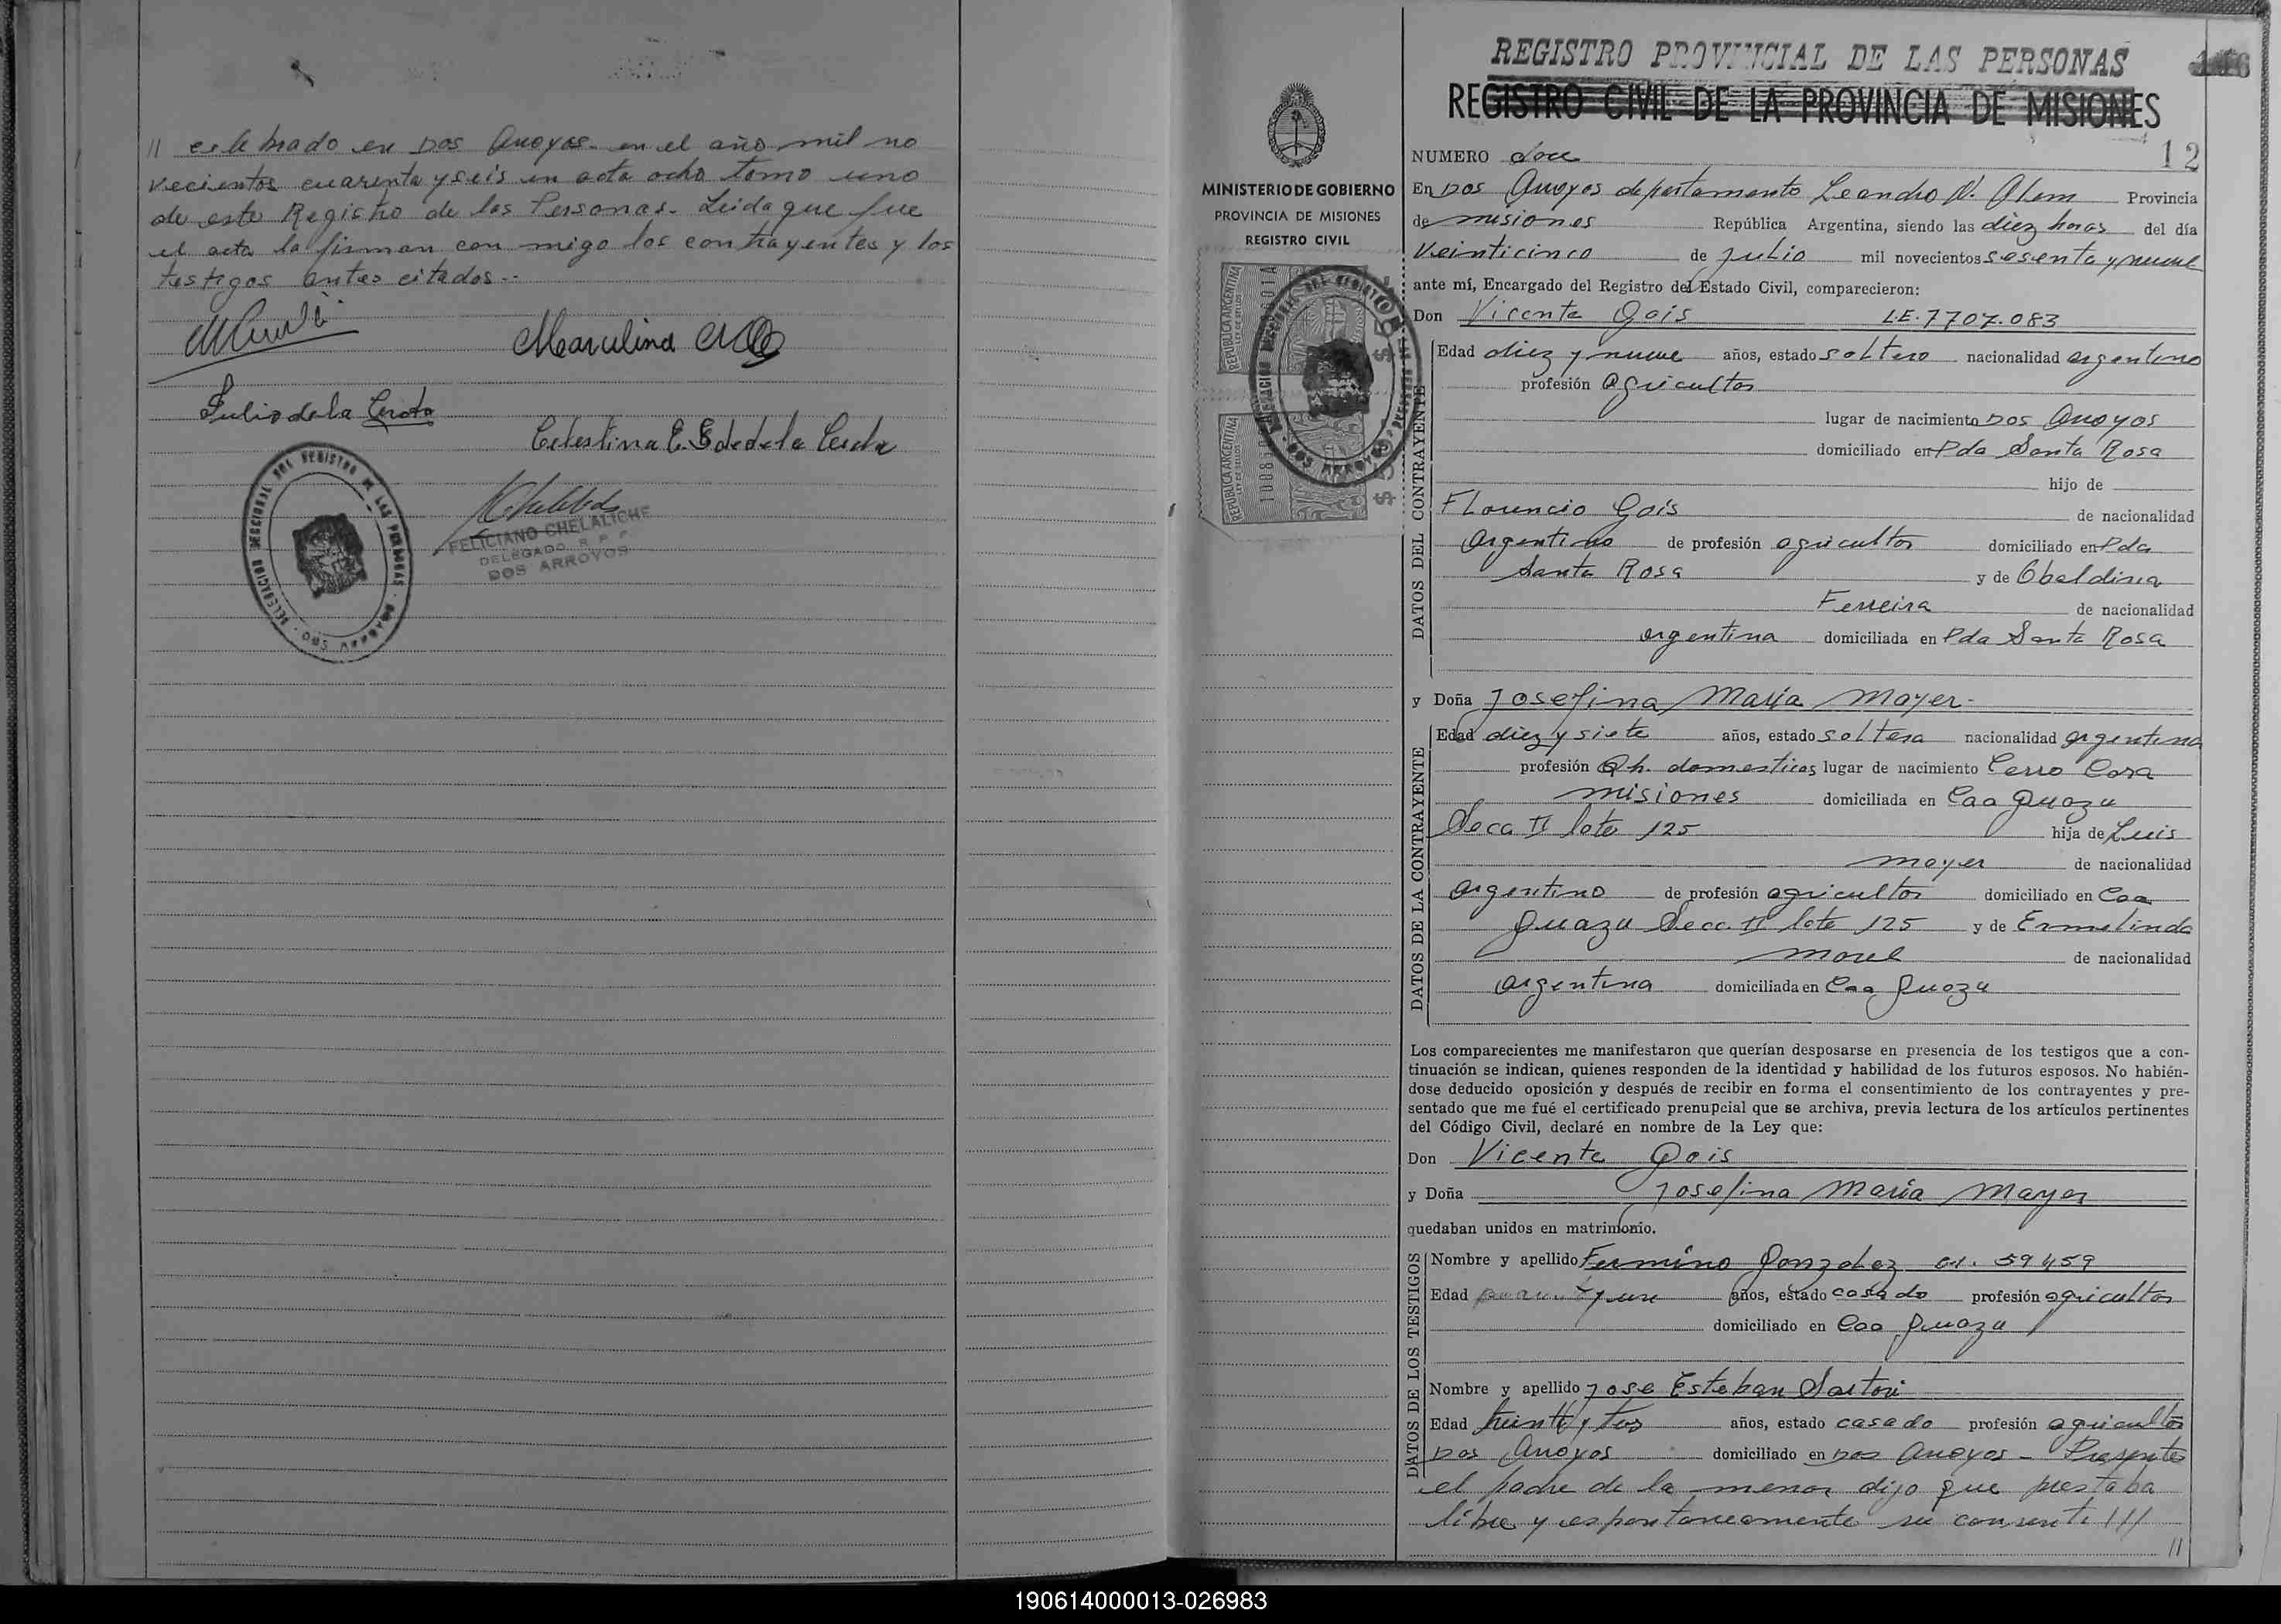 // celebrado en Dos Arroyos en el año mil no
vecientos cuarenta y seis en acta ocho tomo uno
de este Registro de las Personas. Leida que fue
el acta la firman con migo los contrayentes y los
testigos antes citados.-
Julio de la Cerda
Celestina E. S de de la Cerda
FELICIANO CHELALICHE
DELEGADO R. P. P.
DOS ARROYOS
REGISTRO PROVINCIAL DE LAS PERSONAS
REGISTRO CIVIL DE LA PROVINCIA DE MISIONES
MINISTERIO DE GOBIERNO
PROVINCIA DE MISIONES
REGISTRO CIVIL
NUMERO doce
12
En Dos Arroyos departamento Leandro N. Alem Provincia
de misiones República Argentina, siendo las diez horas del día
Veinticinco de Julio mil novecientos sesenta y nueve
ante mí, Encargado del Registro del Estado Civil, comparecieron:
Don Vicente Gois L.E. 7707.083
DATOS DEL CONTRAYENTE
Edad diez y nueve años, estado soltero nacionalidad argentino
profesión agricultor
lugar de nacimiento Dos Arroyos
domiciliado en Pda Santa Rosa
hijo de
Florencio Gois de nacionalidad
Argentino de profesión agricultor domiciliado en Pda
Santa Rosa y de Obaldina
Ferreira de nacionalidad
argentina domiciliada en Pda Santa Rosa
y Doña Josefina Maria Mayer-
DATOS DE LA CONTRAYENTE
Edad diez y siete años, estado soltera nacionalidad argentina
profesión Qh. domesticos lugar de nacimiento Cerro Cora
misiones domiciliada en Caa Guazu
Secc II lote 125 hija de Luis
mayer de nacionalidad
argentino de profesión agricultor domiciliado en Caa
Guazu Secc. II lote 125 y de Ermelinda
morel de nacionalidad
argentina domiciliada en Caa Guazu
Los comparecientes me manifestaron que querían desposarse en presencia de los testigos que a con-
tinuación se indican, quienes responden de la identidad y habilidad de los futuros esposos. No habién-
dose deducido oposición y después de recibir en forma el consentimiento de los contrayentes y pre-
sentado que me fué el certificado prenupcial que se archiva, previa lectura de los artículos pertinentes
del Código Civil, declaré en nombre de la Ley que:
Don Vicente Gois
y Doña Josefina Maria Mayer
quedaban unidos en matrimonio.
DATOS DE LOS TESTIGOS
Nombre y apellido Fermino Gonzalez 59459
Edad años, estado casado profesión agricultor
domiciliado en Caa Guazu
Nombre y apellido Jose Esteban Sartori
Edad treinta y tres años, estado casado profesión agricultor
Dos Arroyos domiciliado en Dos Arroyos - Presente
el padre de la menor dijo que prestaba
libre y espontaneamente su consenti ///
//
190614000013-026983